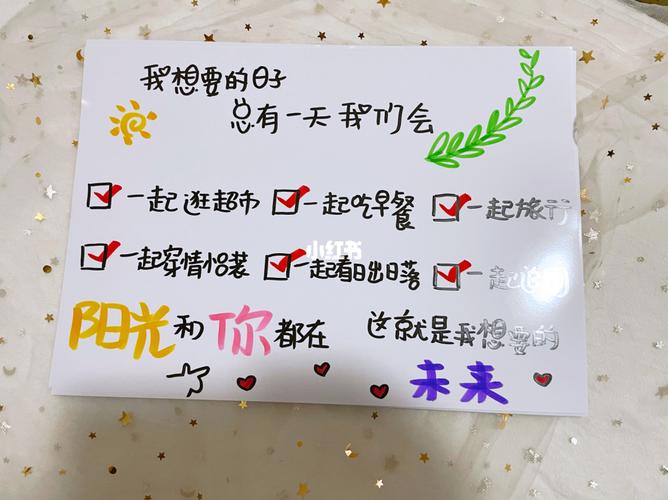 我想要的日子
总有一天我们会
一起逛超市 一起吃早餐 一起旅行
一起穿情侣装 一起看日出日落 一起追剧
小红书
阳光和你都在 这就是我想要的
未来